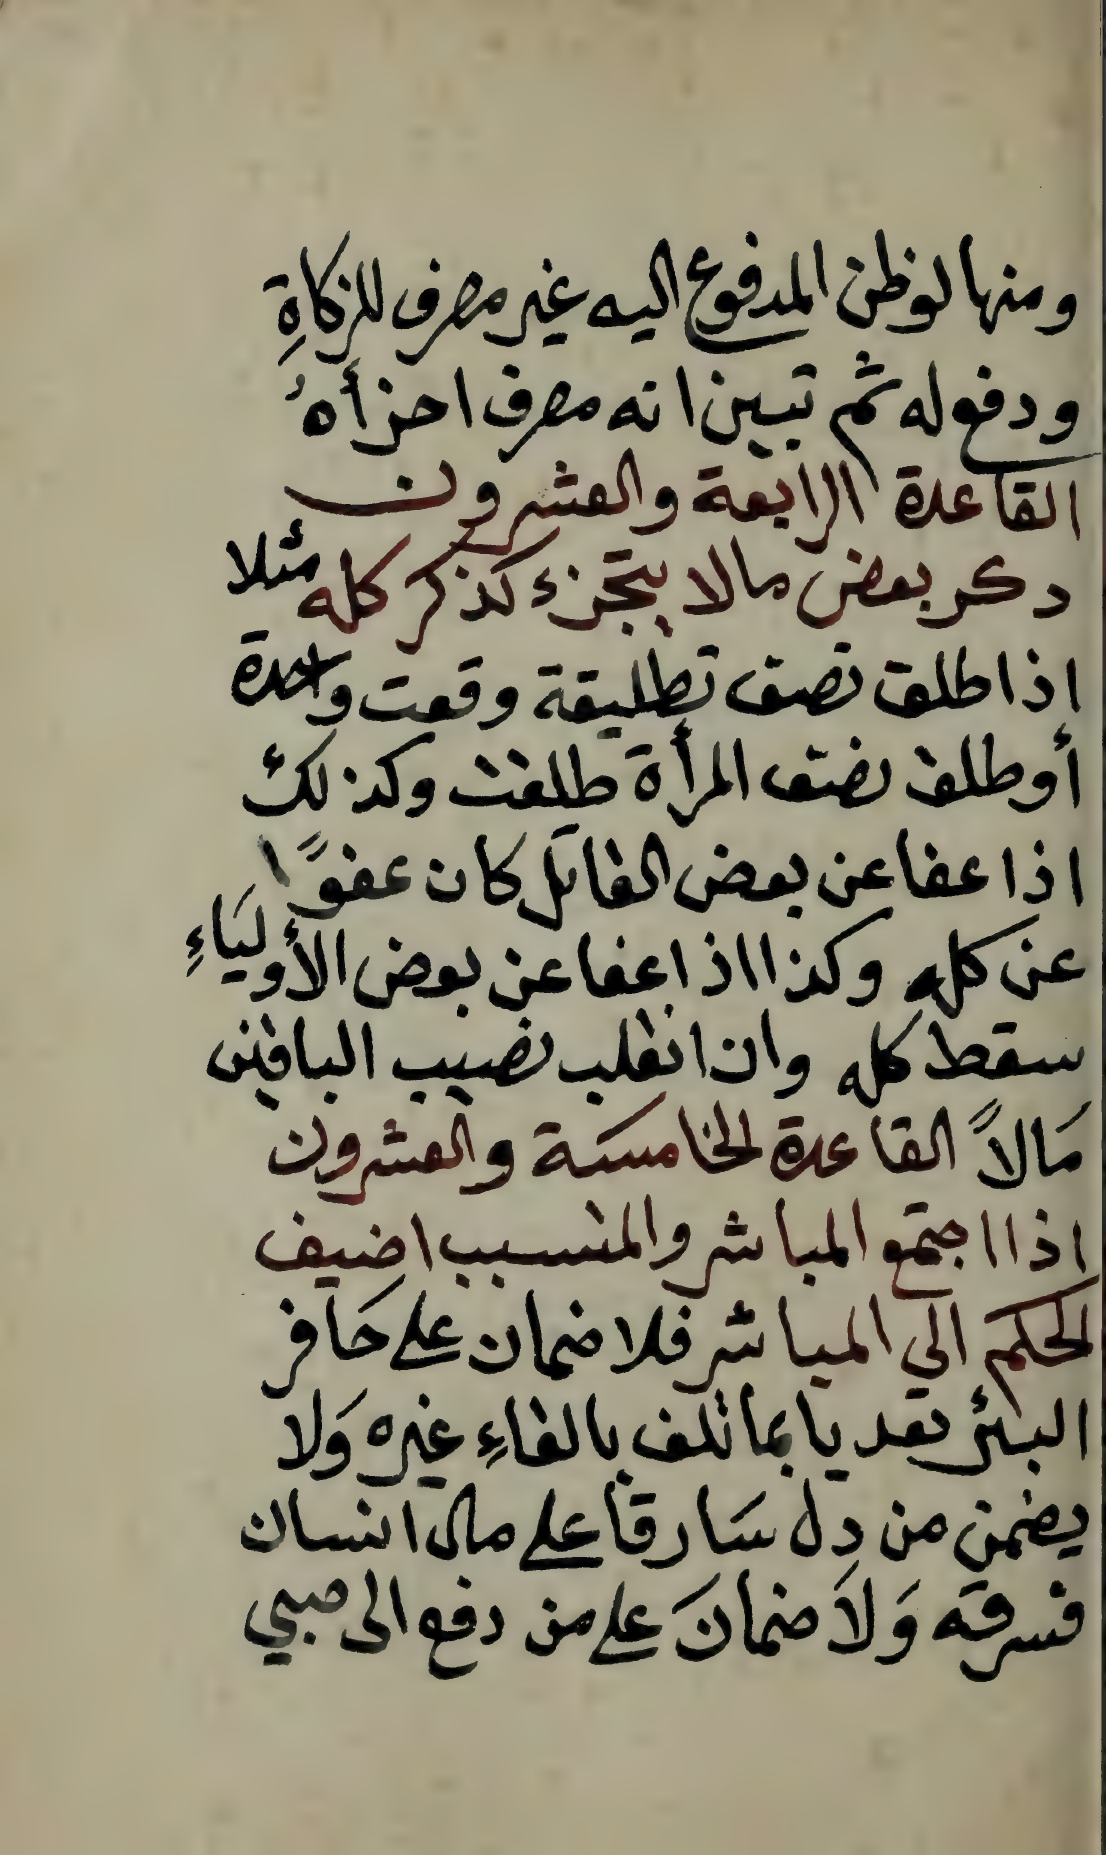 ومنها لوظن المدفوع اليه غير مصرف للزكاةِ
ودفع له ثم تبين انه مصرف اجزأهُ
القاعدة الرابعة والعشرون
ذكر بعض مالا يتجزء كذكر كله مثلا
اذا طلق نصف تطليقة وقعت واحدة
أو طلق نصف المرأة طلقت وكذلك
اذا عفا عن بعض القاتل كان عفوًا
عن كله وكذا اذا عفا عن بعض الأوليَاءِ
سقط كله وان انقلب نصيب الباقين
مَالاً القاعدة الخامسَة والعشرون
اذا اجتمع المباشر والمتسبب اضيف
الحكم الى المباشر فلا ضمان على حَافر
البئر تعديا بما تلف بالقاءِ غيره وَلا
يضمن من دل سَارقا على مال انسان
فسرقه وَلاَ ضمانَ على من دفع الى صبي